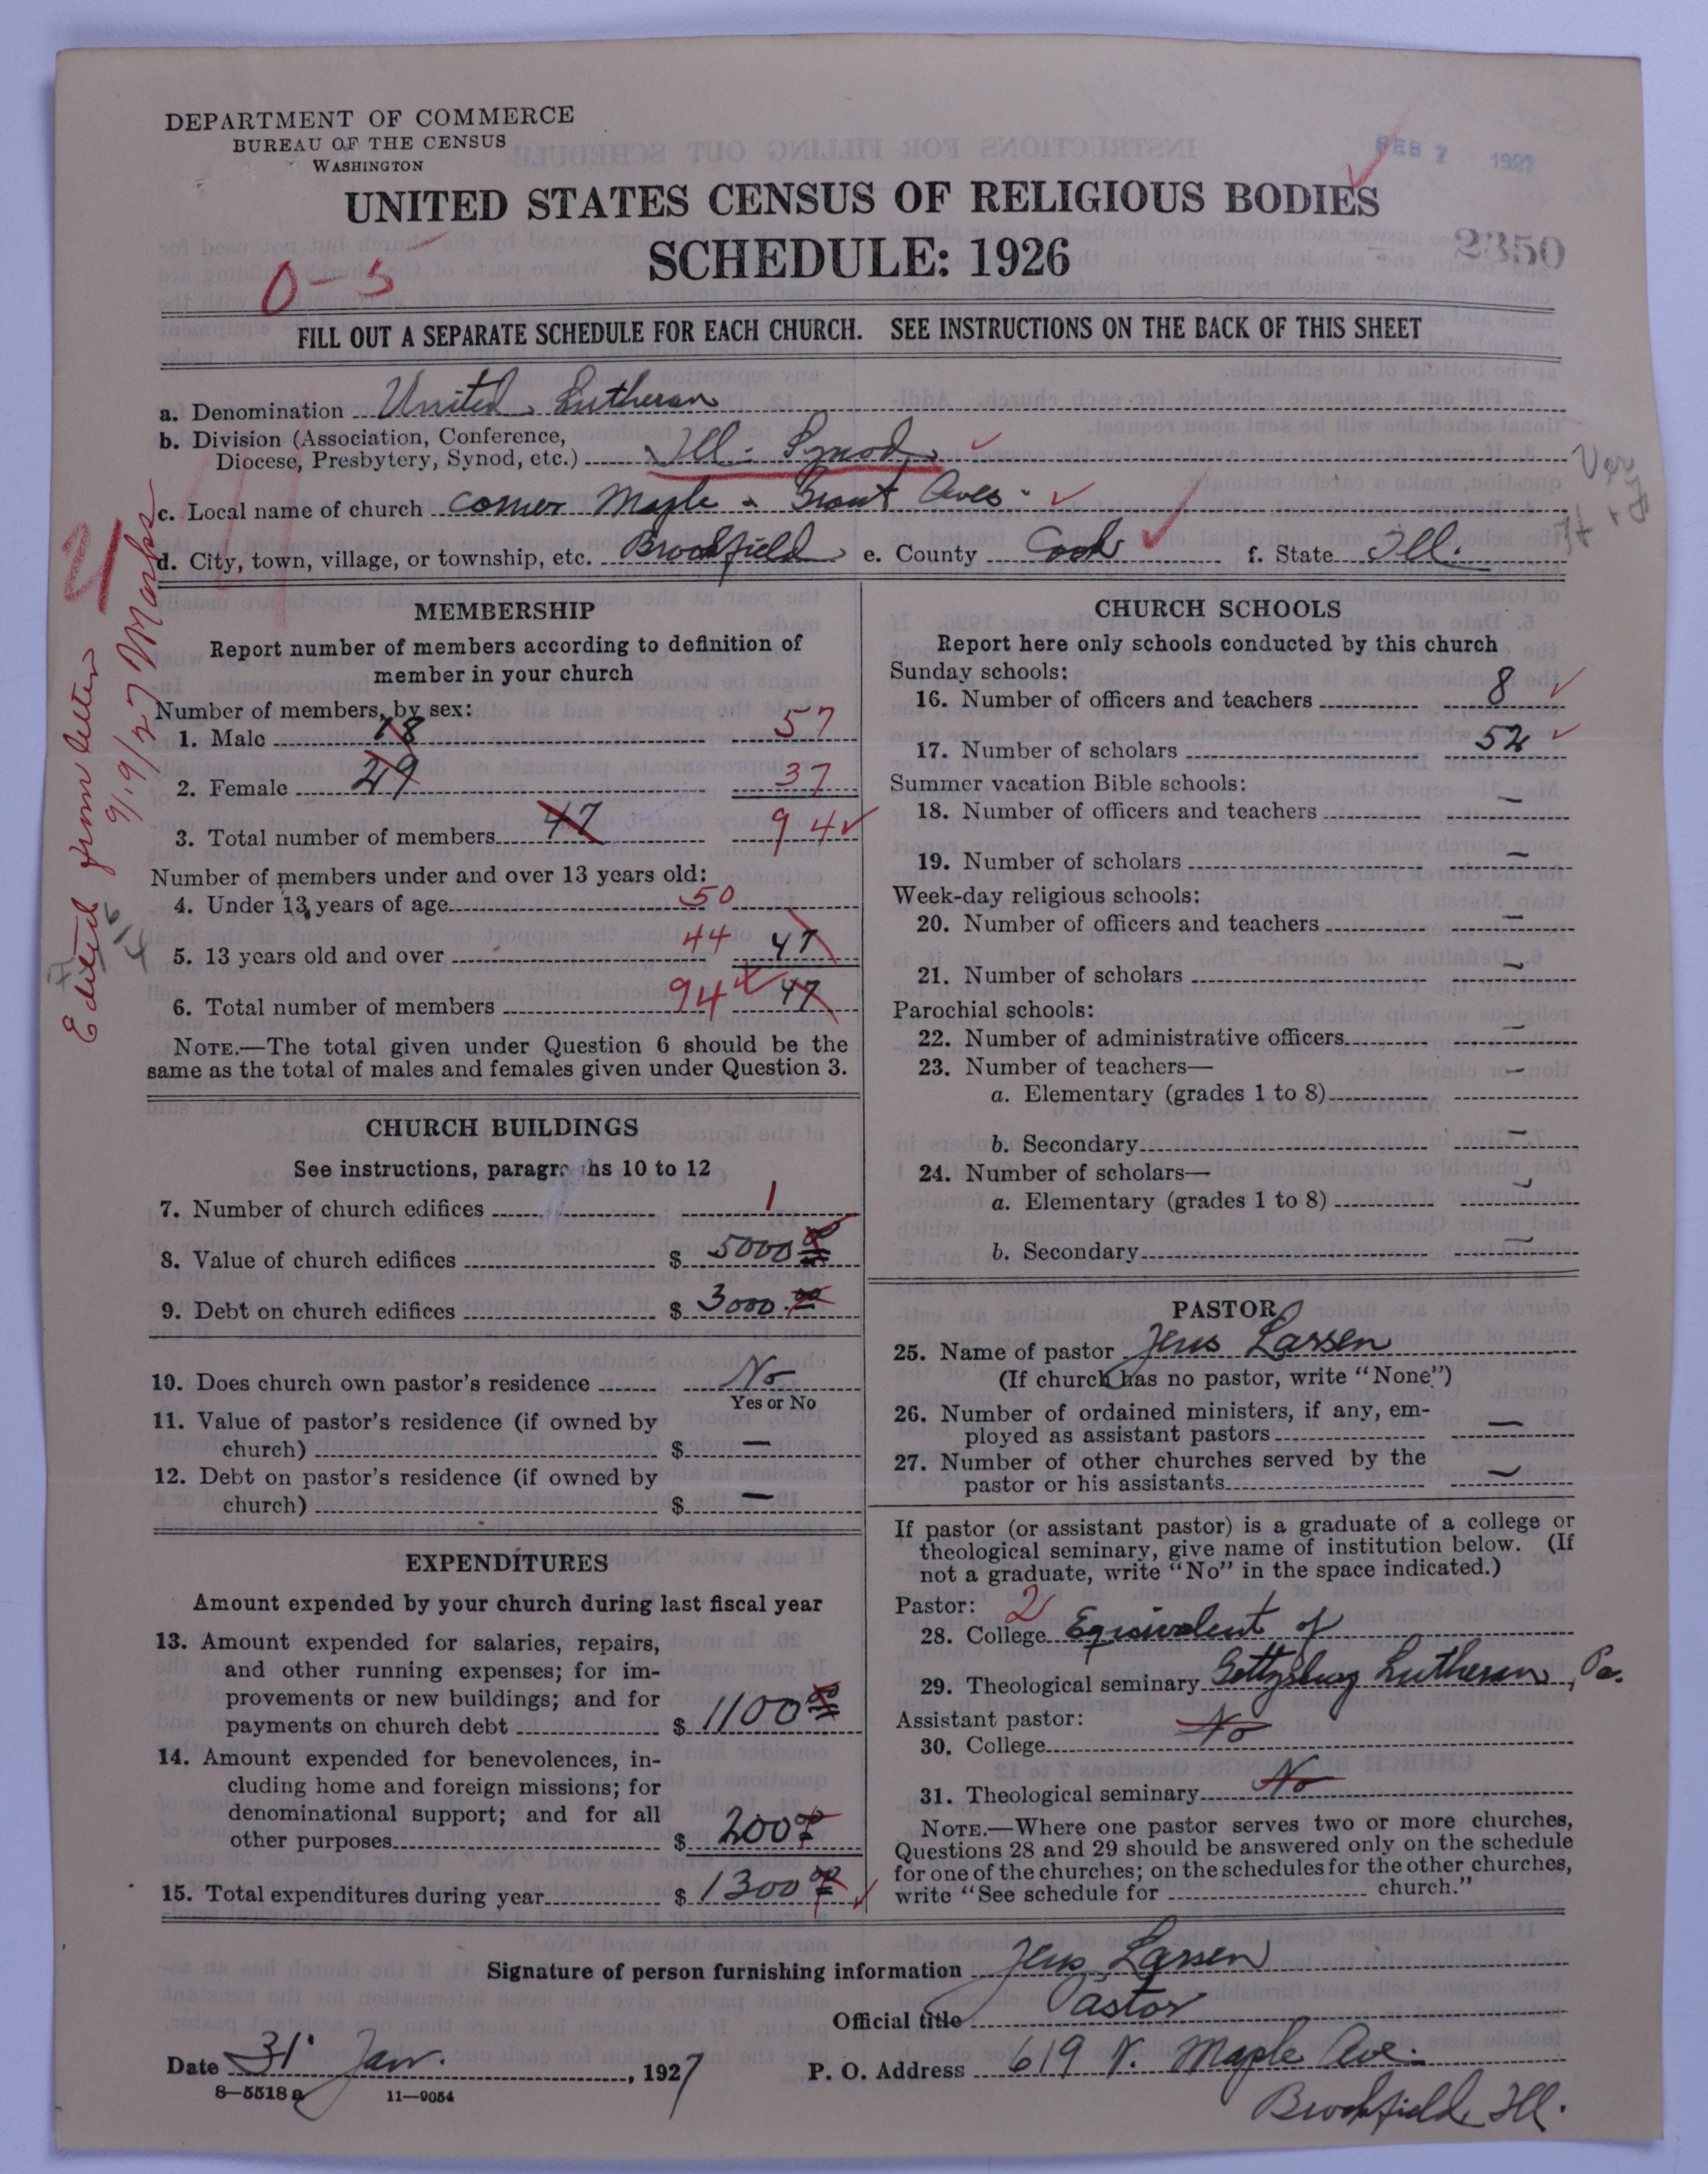 DEPARTMENT OF COMMERCE
BUREAU OF THE CENSUS
WASHINGTON
FEB 7 1927
UNITED STATES CENSUS OF RELIGIOUS BODIES
SCHEDULE: 1926
2350
0-3
FILL OUT A SEPARATE SCHEDULE FOR EACH CHURCH. SEE INSTRUCTIONS ON THE BACK OF THIS SHEET
a. Denomination United Lutheran
b. Division (Association, Conference,
Diocese, Presbytery, Synod, etc.) Ill. Synod
c. Local name of church corner Maple & Grant Aves.
d. City, town, village, or township, etc. Brookfield e. County Cook f. State Ill.
Edited from letter
9/9/27 Marks
MEMBERSHIP
Report number of members according to definition of
member in your church
Number of members, by sex:
1. Male 18 57
2. Female 29 37
3. Total number of members 47 94
Number of members under and over 13 years old:
4. Under 13 years of age 50
5. 13 years old and over 44 47
6. Total number of members 94 47
NOTE.—The total given under Question 6 should be the
same as the total of males and females given under Question 3.
CHURCH BUILDINGS
See instructions, paragraphs 10 to 12
7. Number of church edifices 1
8. Value of church edifices $ 5000 00
9. Debt on church edifices $ 3000.00
10. Does church own pastor's residence No
Yes or No
11. Value of pastor's residence (if owned by
church) $ —
12. Debt on pastor's residence (if owned by
church) $ —
EXPENDITURES
Amount expended by your church during last fiscal year
13. Amount expended for salaries, repairs,
and other running expenses; for im-
provements or new buildings; and for
payments on church debt $ 1100 00
14. Amount expended for benevolences, in-
cluding home and foreign missions; for
denominational support; and for all
other purposes $ 200 00
15. Total expenditures during year $ 1300 00
CHURCH SCHOOLS
Report here only schools conducted by this church
Sunday schools:
16. Number of officers and teachers 8
17. Number of scholars 52
Summer vacation Bible schools:
18. Number of officers and teachers —
19. Number of scholars —
Week-day religious schools:
20. Number of officers and teachers —
21. Number of scholars —
Parochial schools:
22. Number of administrative officers —
23. Number of teachers— —
a. Elementary (grades 1 to 8)
b. Secondary —
24. Number of scholars—
a. Elementary (grades 1 to 8) —
b. Secondary —
PASTOR
25. Name of pastor Jens Larsen
(If church has no pastor, write "None")
26. Number of ordained ministers, if any, em-
ployed as assistant pastors —
27. Number of other churches served by the
pastor or his assistants —
If pastor (or assistant pastor) is a graduate of a college or
theological seminary, give name of institution below. (If
not a graduate, write "No" in the space indicated.)
Pastor: 2
28. College Equivalent of
29. Theological seminary Gettysburg Lutheran, Pa.
Assistant pastor:
30. College No
31. Theological seminary No
NOTE.—Where one pastor serves two or more churches,
Questions 28 and 29 should be answered only on the schedule
for one of the churches; on the schedules for the other churches,
write "See schedule for church."
Signature of person furnishing information Jens Larsen
Official title Pastor
Date 31 Jan. , 1927 P. O. Address 619 N. Maple Ave.
8—5518a 11—9054
Brookfield, Ill.